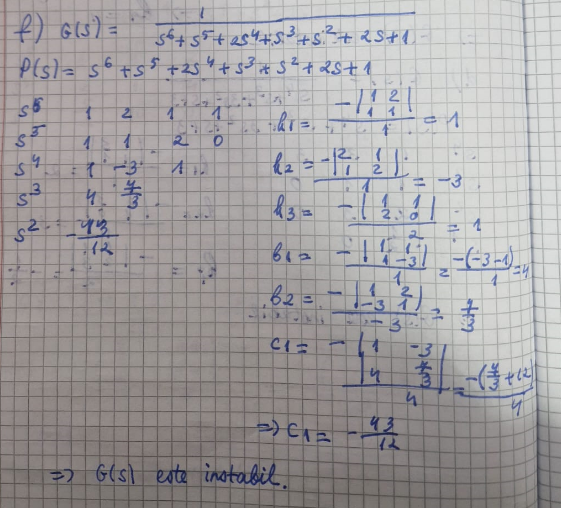 f) G(s) = 1 / (s⁶ + s⁵ + 2s⁴ + s³ + s² + 2s + 1)
P(s) = s⁶ + s⁵ + 2s⁴ + s³ + s² + 2s + 1
s⁶ 1 2 1 1
s⁵ 1 1 2 0
s⁴ 1 -3 1
s³ 4 7/3
s² -43/12
h1 = -|1 2; 1 1| / 1 = 1
h2 = -|2 1; 1 2| / 1 = -3
h3 = -|1 1; 2 0| / 2 = 1
b1 = -|1 1; 1 -3| / 1 = -(-3-1) / 1 = 4
b2 = -|1 2; -3 1| / -3 = 7/3
c1 = -|1 -3; 4 7/3| / 4 = -(7/3 + 12) / 4
=> c1 = -43/12
=> G(s) este instabil.